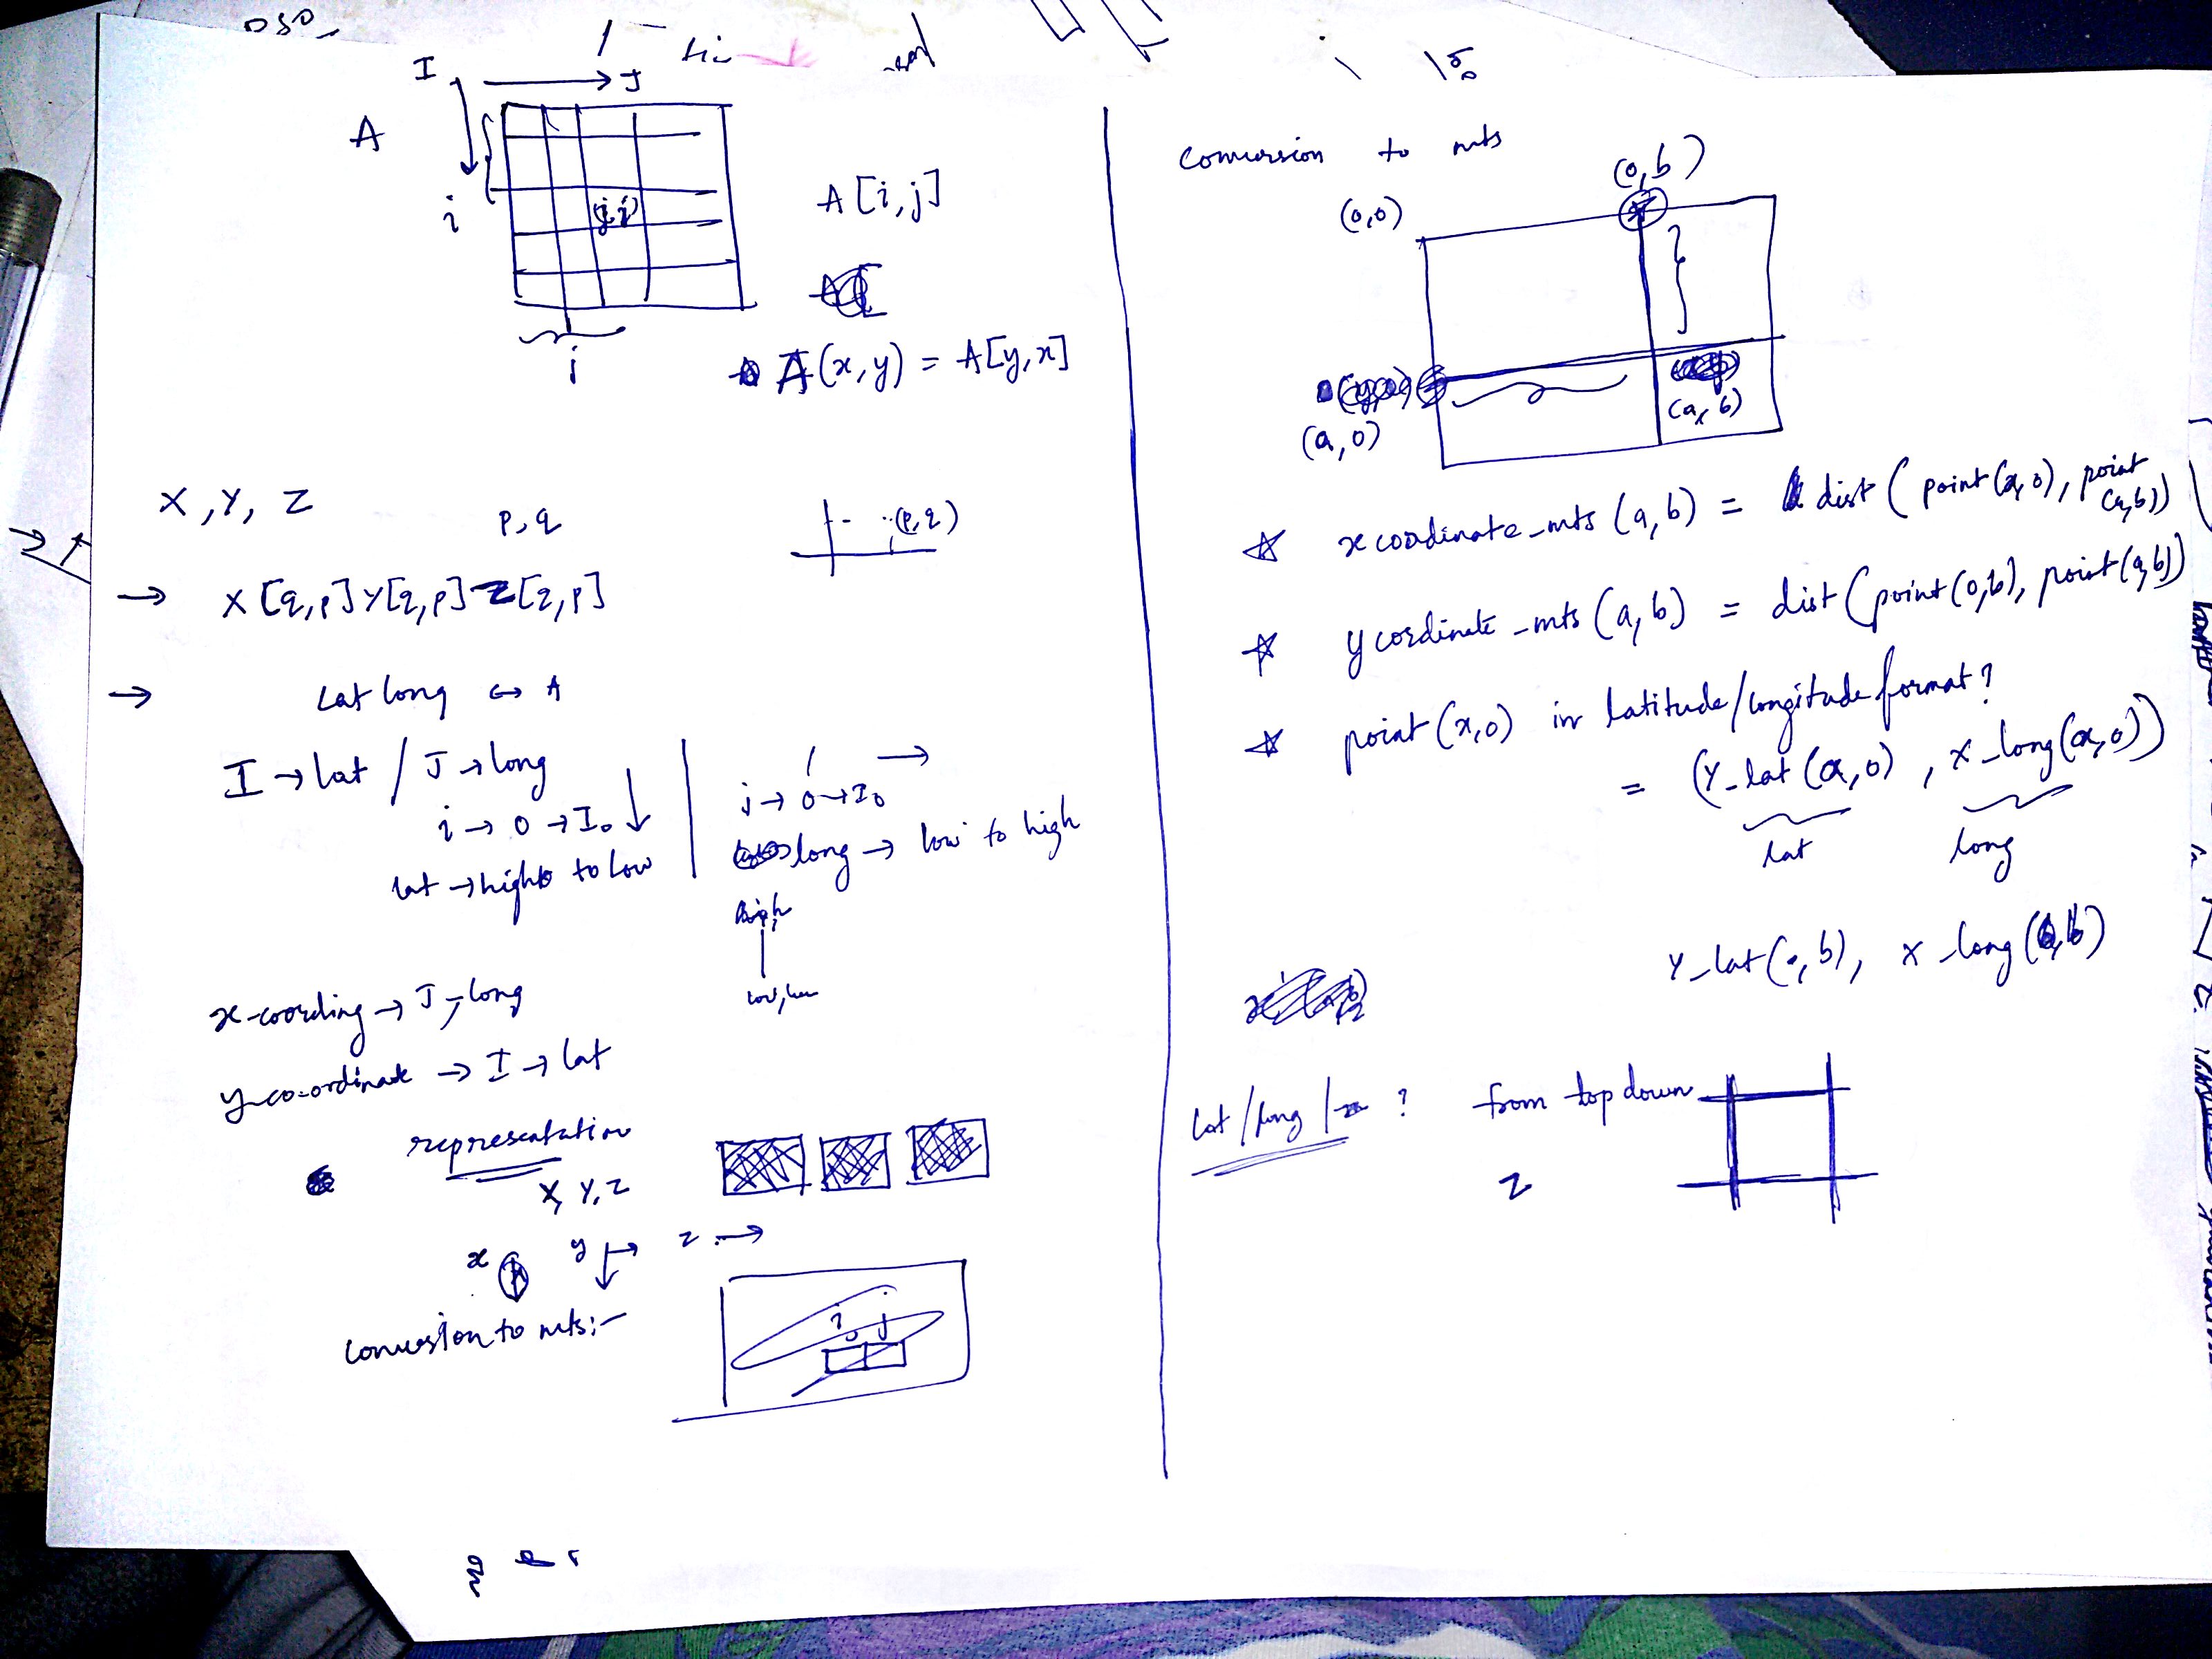 I
J
A
i
(i,j)
A[i,j]
j
A(x,y) = A[y,x]
X, Y, Z
p, q
(p,q)
→ X[q,p] Y[q,p] Z[q,p]
→ Lat long ↔ A
I → lat / J → long
i → 0 → I₀ ↓
lat → high to low
j → 0 → I₀
long → low to high
high,
low, low
x-coording → J → long
y-co-ordinate → I → lat
representation
X, Y, Z
x y z →
Conversion to mts:-
i j
Conversion to mts
(0,b)
(0,0)
(a,b)
(a,0)
☆ x coordinate_mts (a,b) = dist ( point(a,0), point
(a,b))
☆ y cordinate_mts (a,b) = dist (point(0,b), point(a,b))
☆ point (x,0) in latitude/longitude format?
= (Y_lat(a,0), X_long(a,0))
lat long
Y_lat(0,b), X_long(0,b)
lat/long/z ? from top down
Z